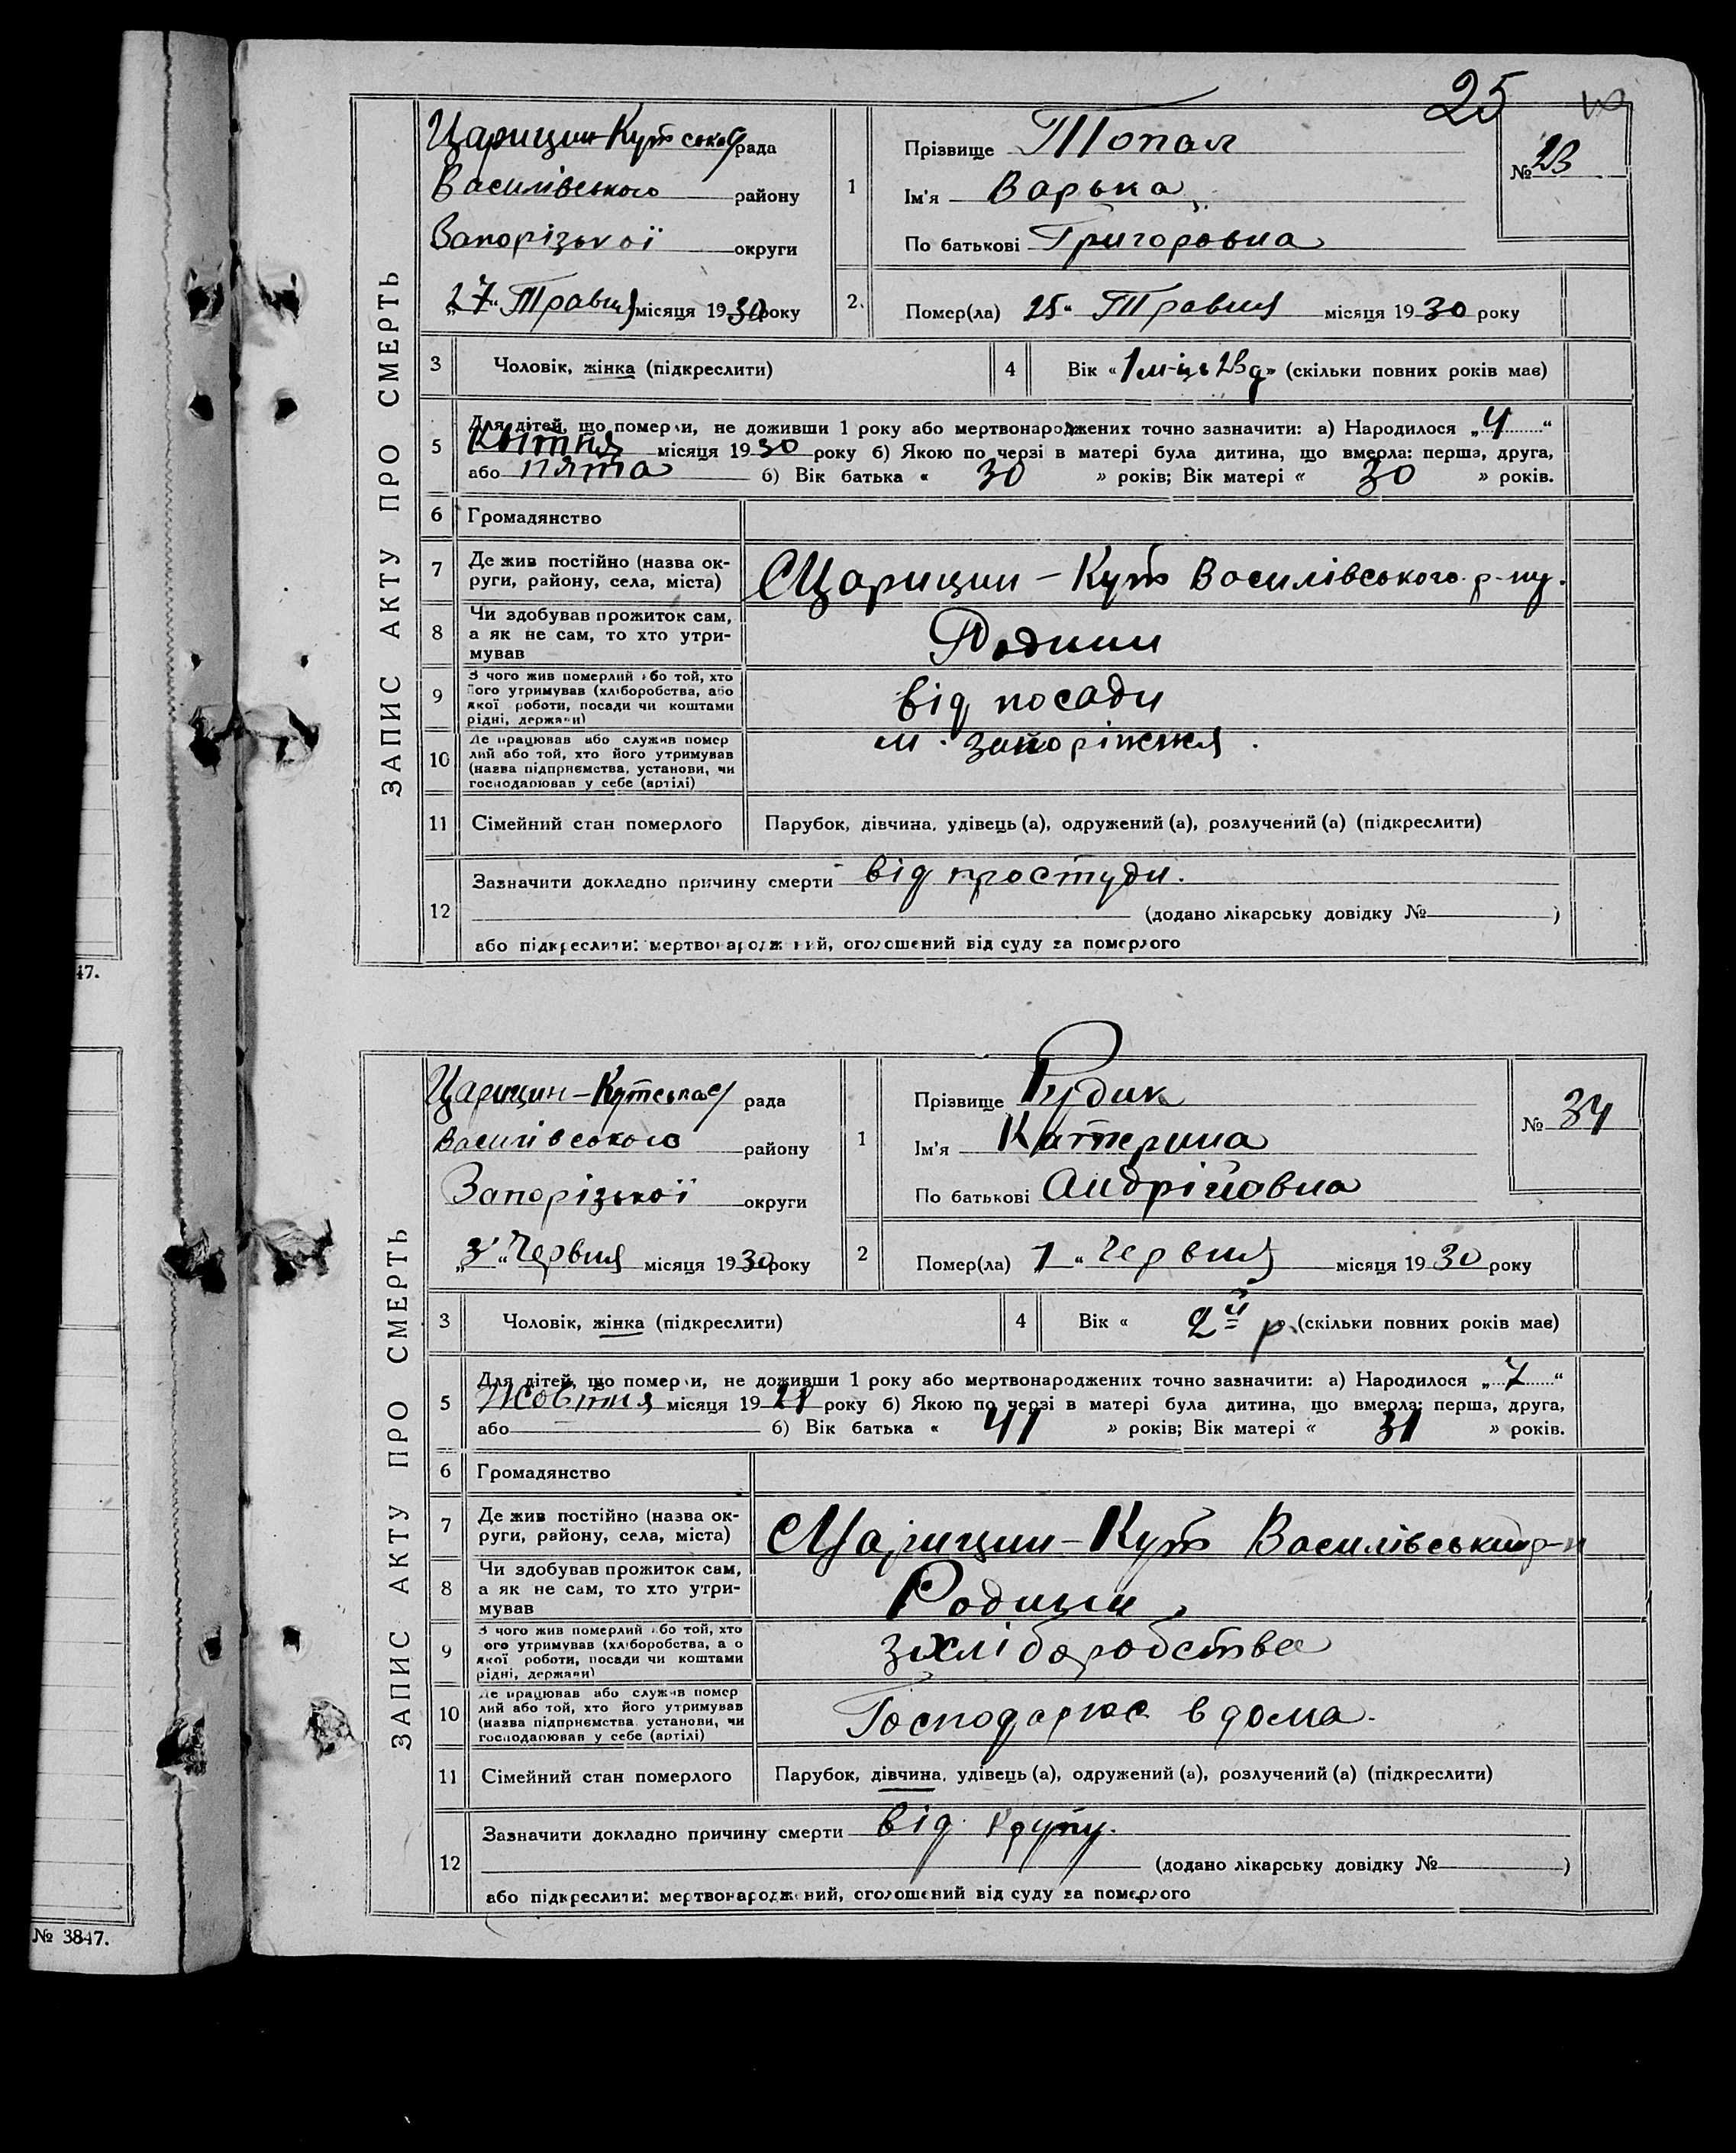 25
ЗАПИС АКТУ ПРО СМЕРТЬ
Царицин-Кутська рада
Василівського району
Запорізької округи
„27“ Травня місяця 1930 року
1
Прізвище Топал
Ім'я Варька
По батькові Григоровна
№ 23
2. Помер(ла) 25“ Травня місяця 1930 року
3 Чоловік, жінка (підкреслити)
4 Вік «1 м-ць 23 д» (скільки повних років має)
5 Для дітей, що померли, не доживши 1 року або мертвонароджених точно зазначити: а) Народилося „4“
Квітня місяця 1930 року б) Якою по черзі в матері була дитина, що вмерла: перша, друга,
або пята б) Вік батька « 30 » років; Вік матері « 30 » років.
6 Громадянство
7 Де жив постійно (назва ок-
руги, району, села, міста)
с Царицин-Кут Василівського р-ну.
8 Чи здобував прожиток сам,
а як не сам, то хто утри-
мував
Родини
9 З чого жив померлий або той, хто
його утримував (хліборобства, або
якої роботи, посади чи коштами
рідні, держави)
від посади
10 Де працював або служив помер
лий або той, хто його утримував
(назва підприємства, установи, чи
господарював у себе (артілі)
м. Запоріжжя.
11 Сімейний стан померлого
Парубок, дівчина, удівець (а), одружений (а), розлучений (а) (підкреслити)
12 Зазначити докладно причину смерти від простуди.
(додано лікарську довідку № )
або підкреслити: мертвонароджений, оголошений від суду за померлого
47.
ЗАПИС АКТУ ПРО СМЕРТЬ
Царицин-Кутська рада
Василівського району
Запорізької округи
„3“ Червня місяця 1930 року
1
Прізвище Рудик
Ім'я Катерина
По батькові Андрійовна
№ 34
2 Помер(ла) 1 “ Червня місяця 1930 року
3 Чоловік, жінка (підкреслити)
4 Вік « 2й р. (скільки повних років має)
5 Для дітей, що померли, не доживши 1 року або мертвонароджених точно зазначити: а) Народилося „7“
Жовтня місяця 1928 року б) Якою по черзі в матері була дитина, що вмерла: перша, друга,
або б) Вік батька « 41 » років; Вік матері « 31 » років.
6 Громадянство
7 Де жив постійно (назва ок-
руги, район, села, міста)
с Царицин-Кут Василівський р-н
8 Чи здобував прожиток сам,
а як не сам, то хто утри-
мував
Родини
9 З чого жив померлий або той, хто
ого утримував (хліборобства, а о
якої роботи, посади чи коштами
рідні, держави)
з хліборобства
10 Де працював або служив помер
лий або той, хто його утримував
(назва підприємства установи, чи
господарював у себе (артілі)
Господарює вдома.
11 Сімейний стан померлого
Парубок, дівчина, удівець (а), одружений (а), розлучений (а) (підкреслити)
12 Зазначити докладно причину смерти від крупу.
(додано лікарську довідку № )
або підкреслити: мертвонароджений, оголошений від суду за померлого
№ 3847.